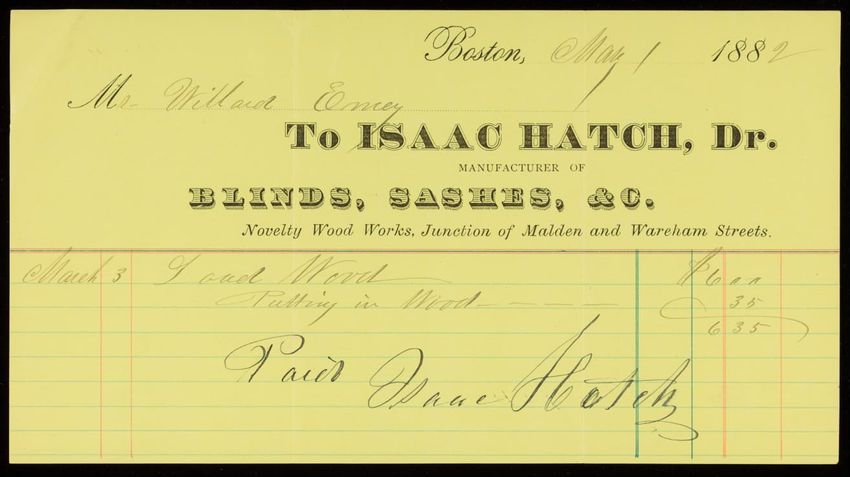 Boston, May 1 1882
Mr. Willard Emery
To ISAAC HATCH, Dr.
MANUFACTURER OF
BLINDS, SASHES, &C.
Novelty Wood Works, Junction of Malden and Wareham Streets.
March 3 Load Wood $6 00
Putting in Wood 35
6 35
Paid
Isaac Hatch